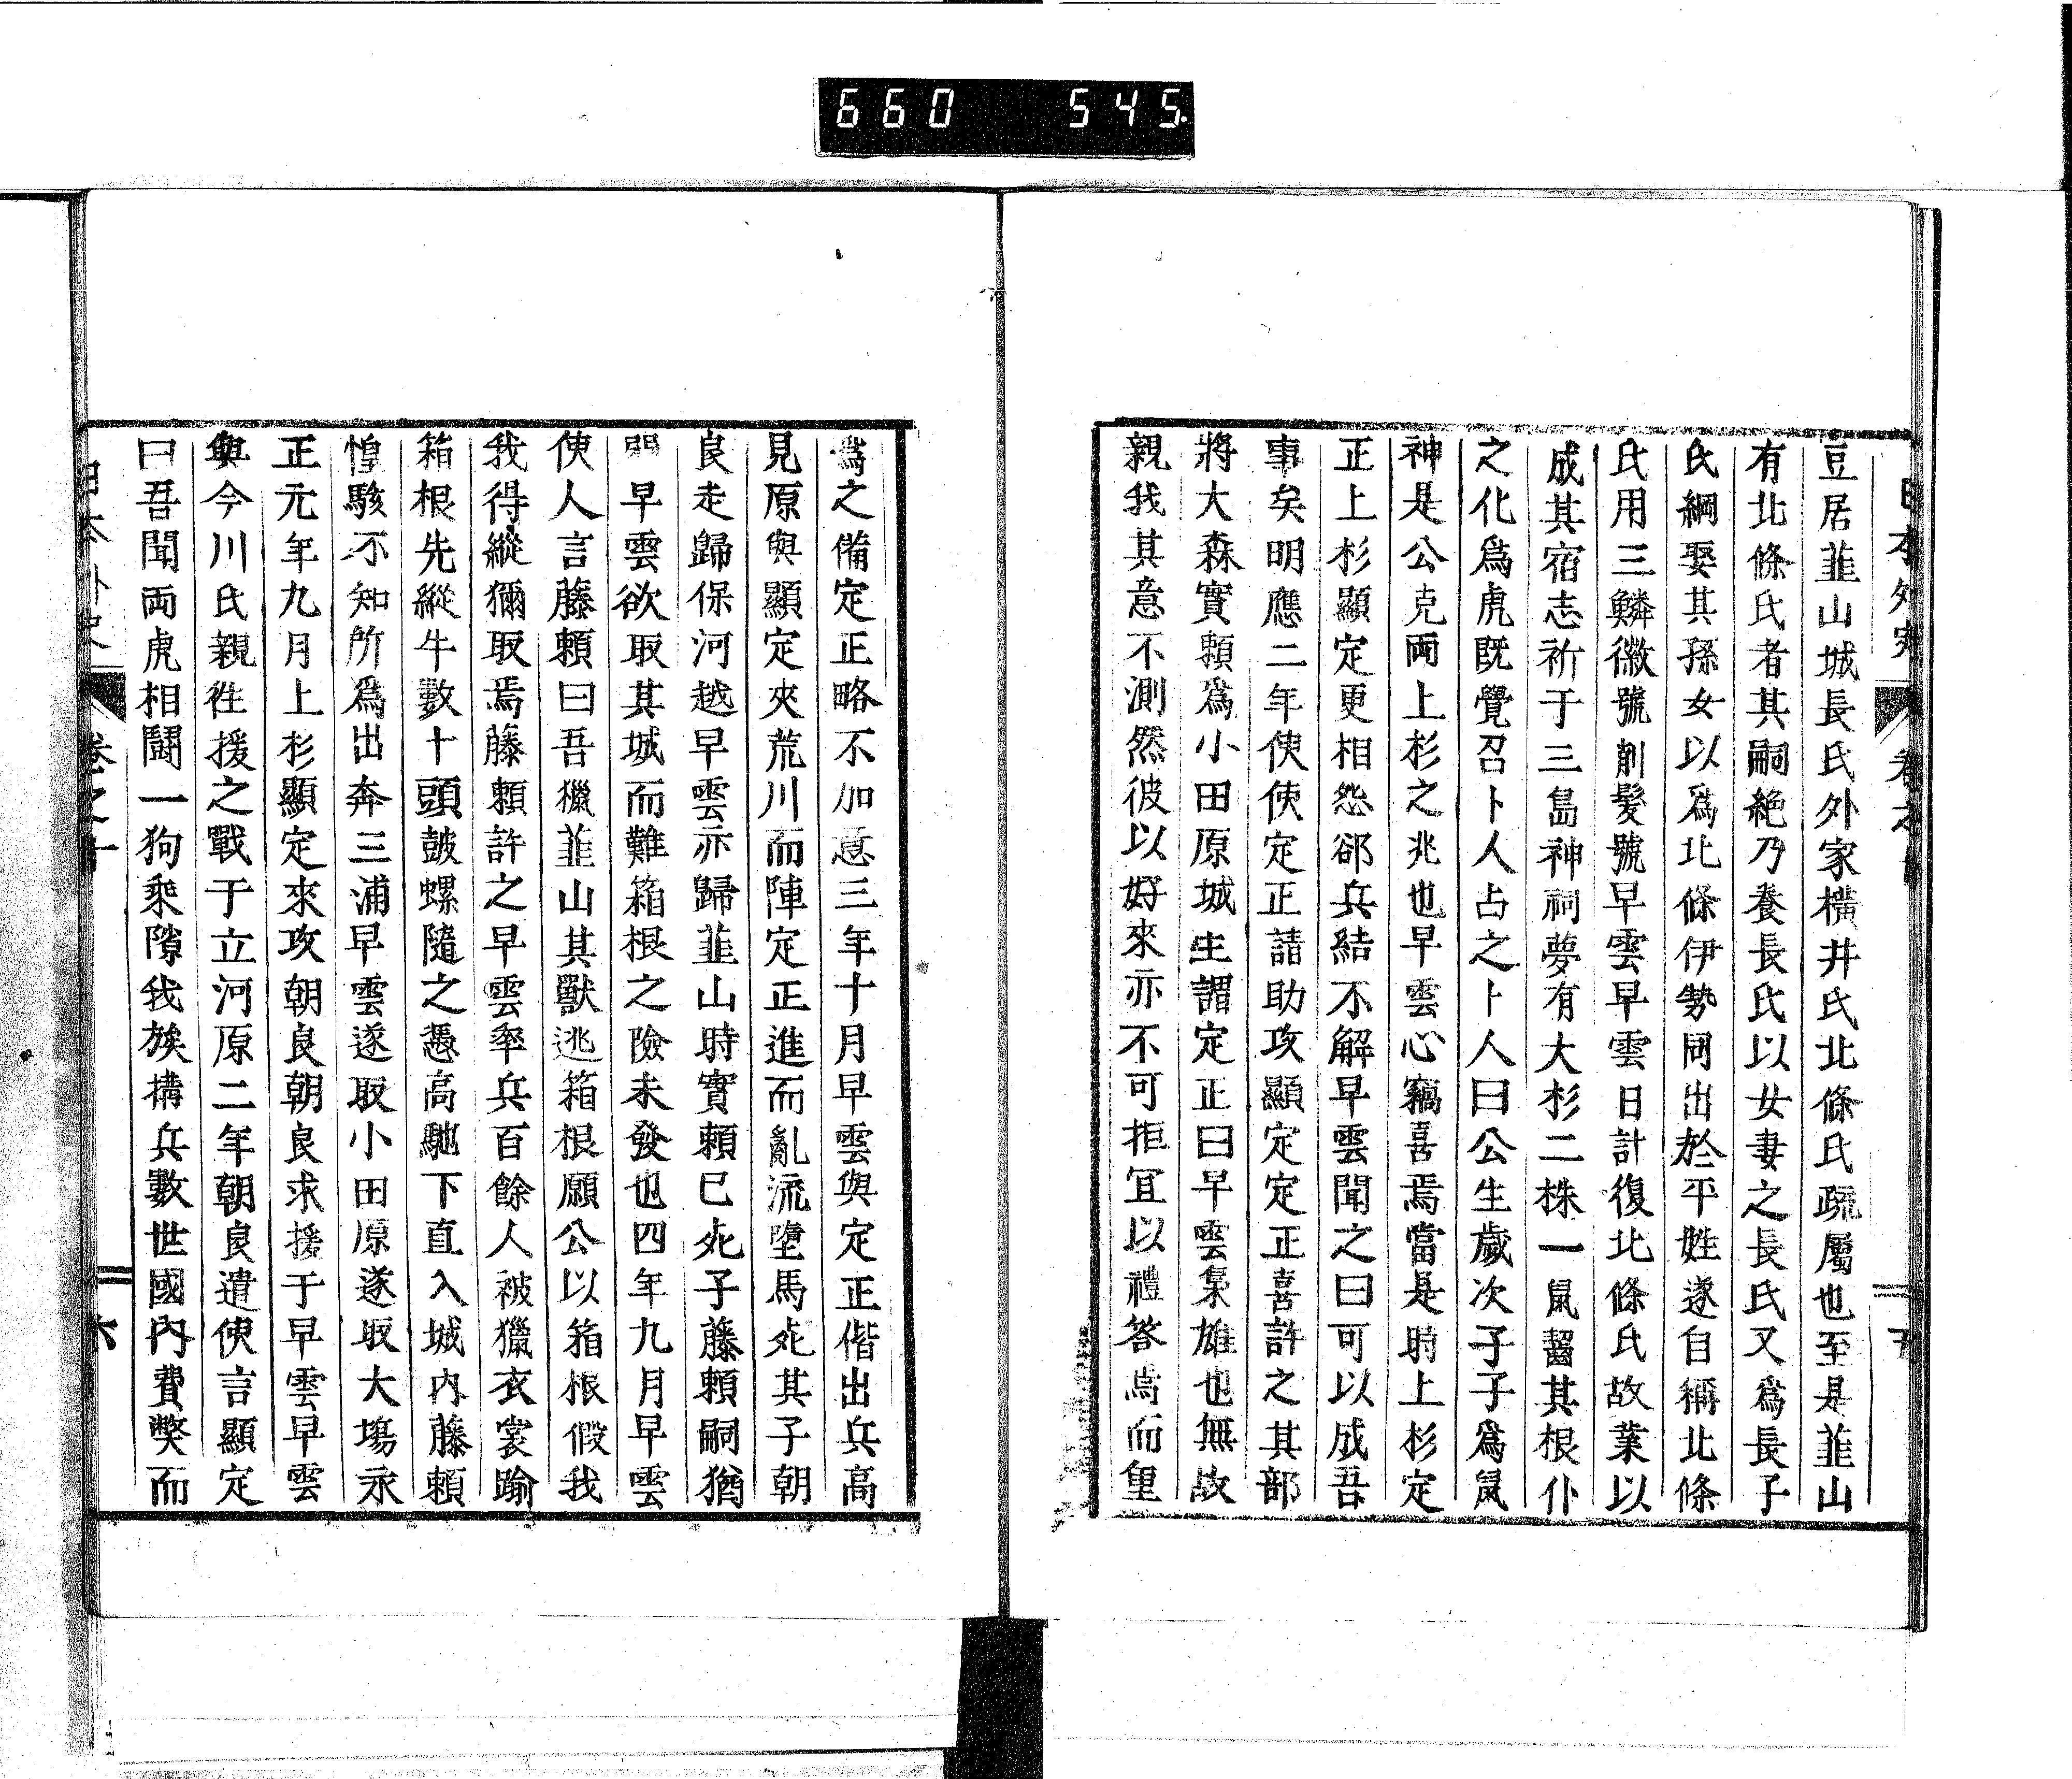 660 545
日本外史 卷之十 五
豆居韮山城長氏外家橫井氏北條氏疏屬也至是韮山
有北條氏者其嗣絶乃養長氏以女妻之長氏又爲長子
氏綱娶其孫女以爲北條伊勢同出於平姓遂自稱北條
氏用三鱗徽號削髮號早雲早雲日計復北條氏故業以
成其宿志祈于三島神祠夢有大杉二株一鼠齧其根仆
之化爲虎既覺召卜人占之卜人曰公生歲次子子爲鼠
神是公克兩上杉之兆也早雲心竊喜焉當是時上杉定
正上杉顯定更相怨郤兵結不解早雲聞之曰可以成吾
事矣明應二年使使定正請助攻顯定定正喜許之其部
將大森實頼爲小田原城主謂定正曰早雲梟雄也無故
親我其意不測然彼以好來亦不可拒宜以禮答焉而重
爲之備定正略不加意三年十月早雲與定正偕出兵高
見原與顯定夾荒川而陣定正進而亂流墮馬死其子朝
良走歸保河越早雲亦歸韮山時實頼已死子藤頼嗣猶
弱早雲欲取其城而難箱根之險未發也四年九月早雲
使人言藤頼曰吾獵韮山其獸逃箱根願公以箱根假我
我得縱獵取焉藤頼許之早雲率兵百餘人被獵衣裳踰
箱根先縱牛數十頭鼓螺隨之憑高馳下直入城内藤頼
惶駭不知所爲出奔三浦早雲遂取小田原遂取大塲永
正元年九月上杉顯定來攻朝良朝良求援于早雲早雲
與今川氏親往援之戰于立河原二年朝良遣使言顯定
曰吾聞兩虎相鬪一狗乘隙我族搆兵數世國內費弊而
日本外史 卷之十 六